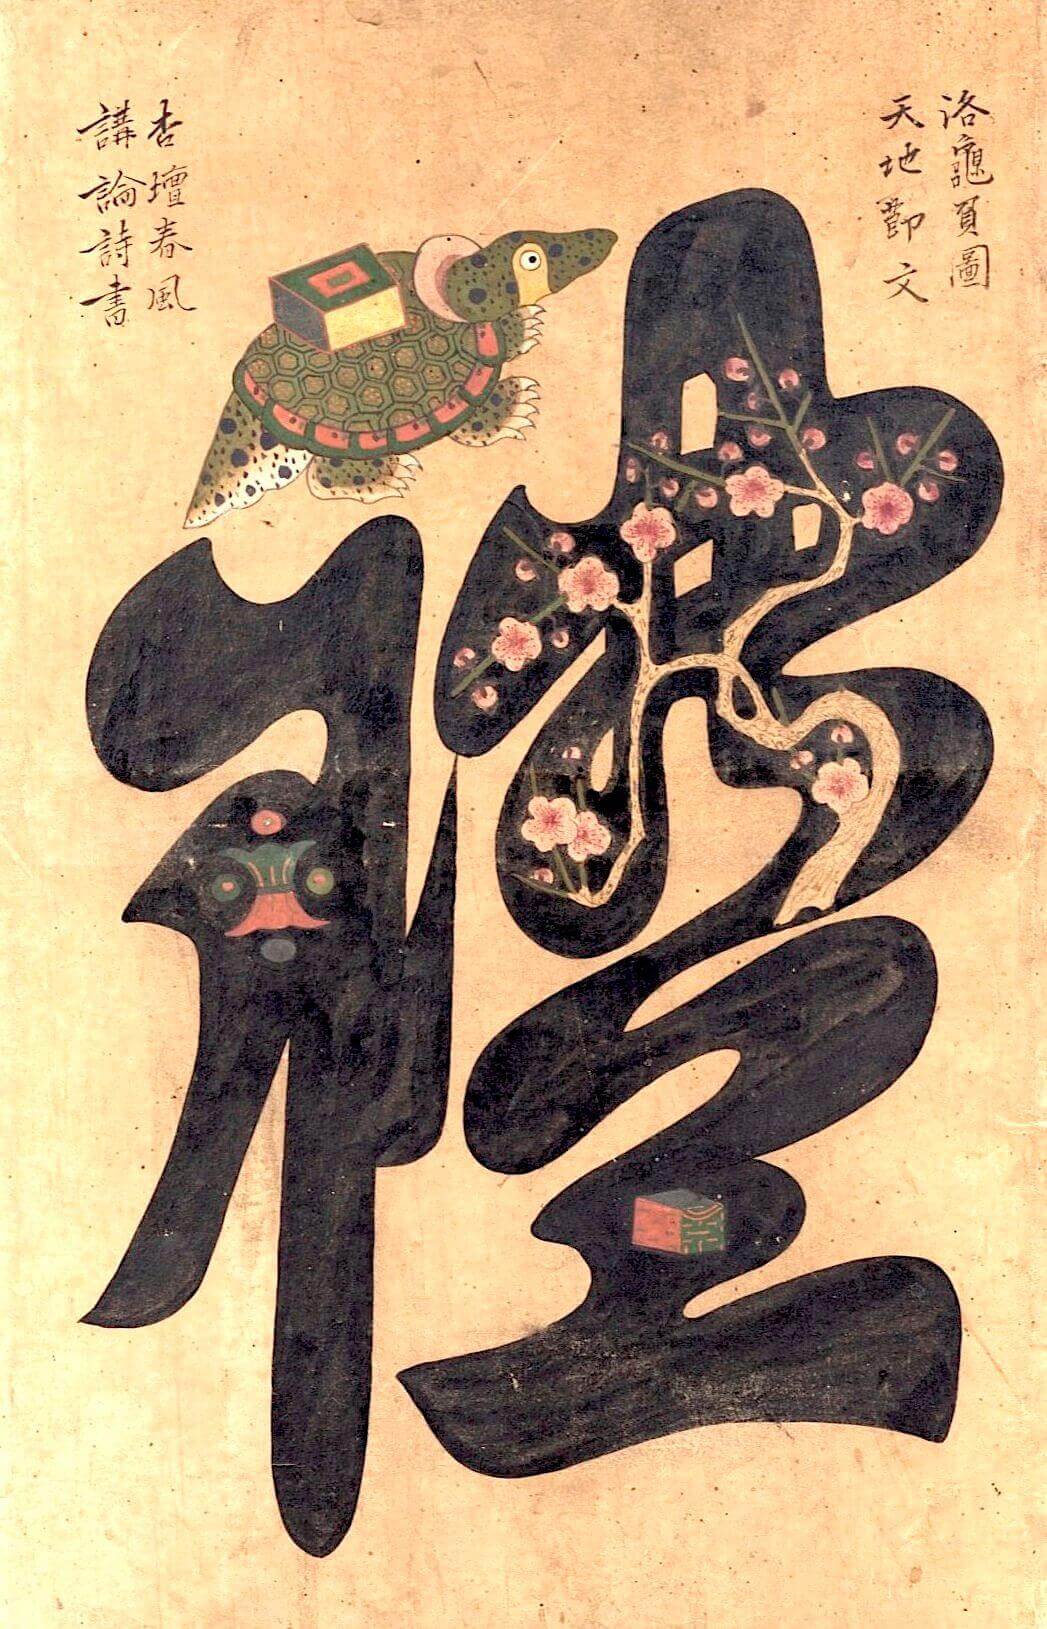 洛龜負圖
天地節文
禮
杏壇春風
講論詩書